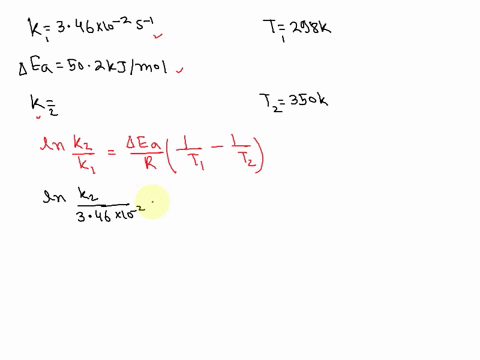 K₁ = 3.46×10⁻² s⁻¹ T₁ = 298K
ΔEa = 50.2 kJ/mol
K₂ = T₂ = 350K
ln K₂/K₁ = ΔEa/R (1/T₁ − 1/T₂)
ln K₂/3.46×10⁻²